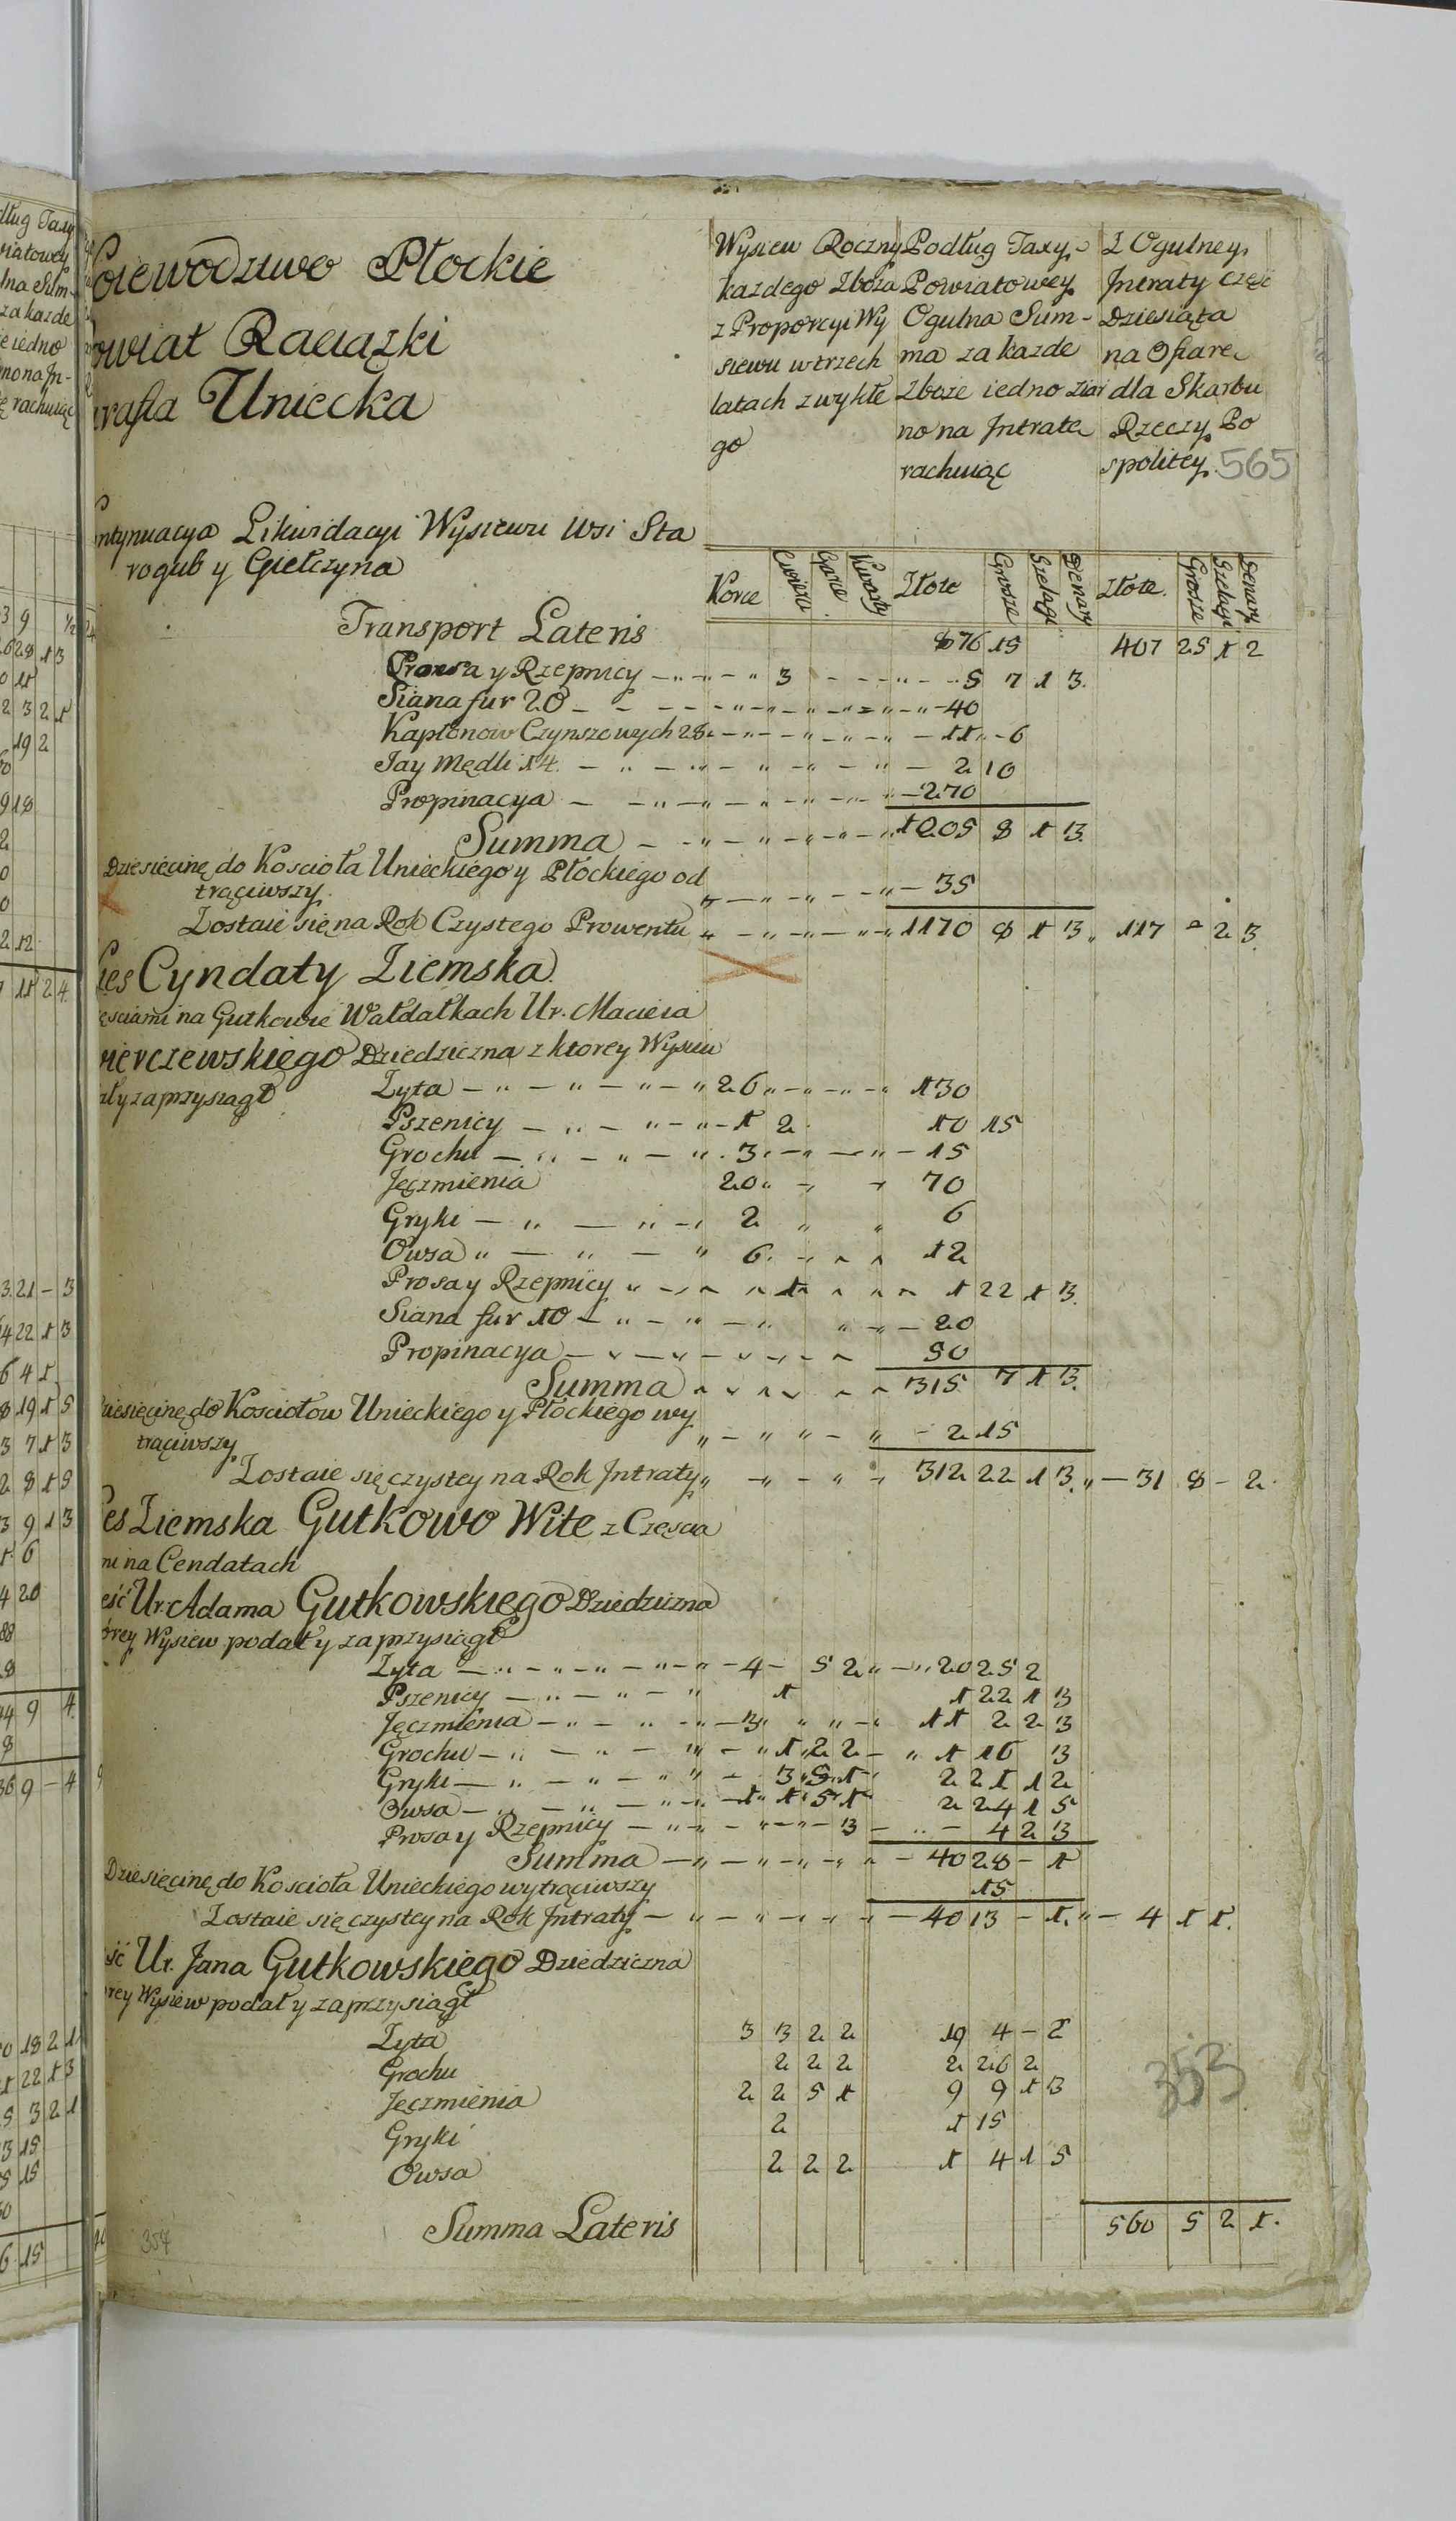 oiewodztwo Płockie
owiat Raciązki
rafia Uniecka
Wysiew Roczny
kazdego Zboza
z Proporcyi Wy
siewu w trzech
latach zwykłe
go
Podług Taxy
Powiatowey
Ogulna Sum-
ma za kazde
Zboze iedno ziar
no na Intratę
rachuiąc
Z Ogulney
Intraty Częsć
Dziesiąta
na Ofiarę
dla Skarbu
Rzeczy Po
spolitey 565
ntynuacya Likwidacyi Wysiewu Wsi Sta
rogub y Giełczyna
Korce Cwierci Garce Kwarty Złote Grosze Szelągi Denary Złote Grosze Szelągi Denary
Transport Lateris 876 15 407 25 1 2
Prosa y Rzepnicy 3 5 7 1 3.
Siana fur 20 40
Kapłonow Czynszowych 28 11 6
Jay Mędli 14 2 10
Propinacya 270
Summa 1205 8 1 3.
Dziesięcinę do Koscioła Unieckiego y Płockiego od
trąciwszy 35
Zostaie się na Rok Czystego Prowentu 1170 8 1 3 117 - 2 3.
ieś Cyndaty Ziemska
ęsciami na Gutkowie Wałdatkach Ur. Macieia
wierczewskiego Dziedziczna z ktorey Wysiew
ał y zaprzysiągł
Zyta 26 130
Pszenicy 1 2 10 15
Grochu 3 15
Jęczmienia 20 70
Gryki 2 6
Owsa 6 12
Prosa y Rzepnicy 1 1 22 1 3.
Siana fur 10 20
Propinacya 50
Summa 315 7 1 3.
ziesięcinę do Kosciołow Unieckiego y Płockiego wy
trąciwszy 2 15
Zostaie się czystey na Rok Intraty 312 22 1 3. 31 8 - 2.
ieś Ziemska Gutkowo Wite z Częscia
mi na Cendatach
ęść Ur. Adama Gutkowskiego Dziedziczna
órey Wysiew podał y zaprzysiągł
Zyta 4 - 5 2 20 25 2
Pszenicy 1 1 22 1 3
Jęczmienia 3 11 2 2 3
Grochu 1 2 2 1 16 3
Gryki 3 5 1 2 21 1 2
Owsa 1 1 5 1 2 24 1 5
Prosa y Rzepnicy 3 4 2 3
Summa 40 28 - 1
Dziesięcinę do Koscioła Unieckiego wytrąciwszy 15
Zostaie się czystey na Rok Intraty 40 13 - 1. 4 1 1.
ść Ur. Jana Gutkowskiego Dziedziczna
rey Wysiew podał y zaprzysiągł
Zyta 3 3 2 2 19 4 - 2
Grochu 2 2 2 2 26 2
Jęczmienia 2 2 5 1 9 9 1 3
Gryki 2 1 15
Owsa 2 2 2 1 4 1 5
353
Summa Lateris 560 5 2 1.
354